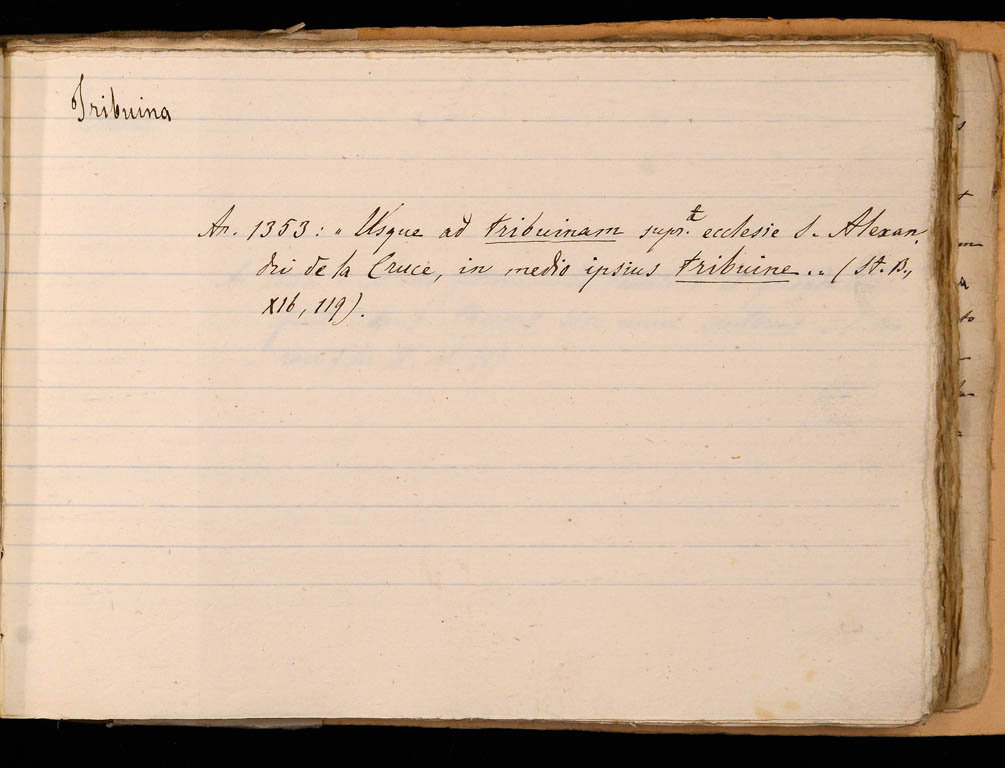 Tribuina
An. 1353: „ Usque ad tribuinam supr.ᵗ ecclesie S. Alexan-
dri de la Cruce, in medio ipsius tribuine.. (St. B.,
XIb, 119).